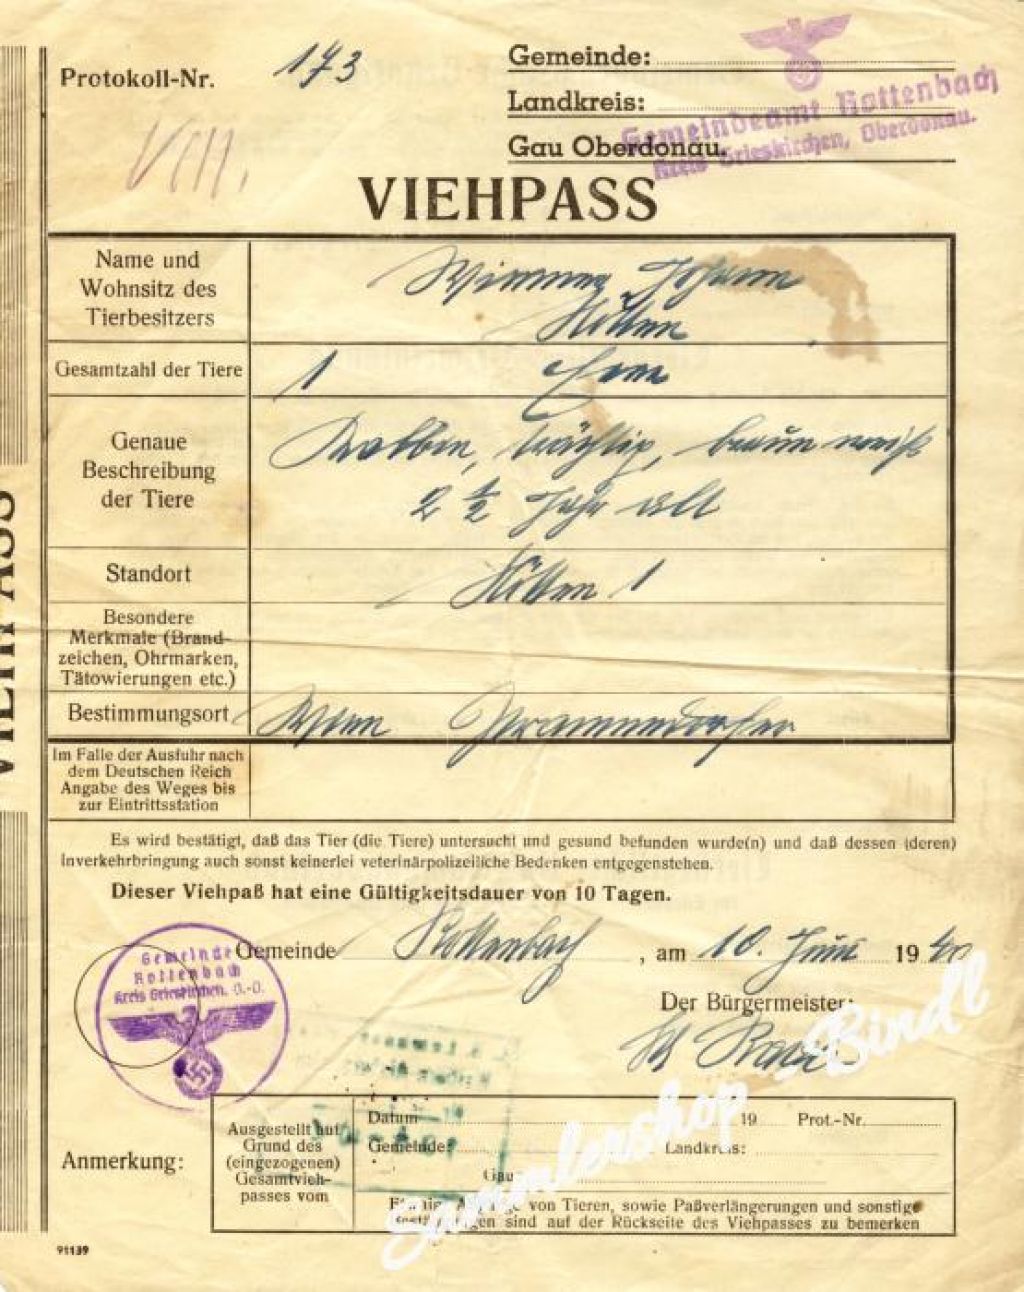 Protokoll-Nr. 173
Gemeinde:
Landkreis:
Gau Oberdonau.
Gemeindeamt Rottenbach
Kreis Grieskirchen, Oberdonau.
VIEHPASS
VIEHPASS
Name und
Wohnsitz des
Tierbesitzers
Johann
Gesamtzahl der Tiere
1
Genaue
Beschreibung
der Tiere
trächtig, braun weiß
2 1/2 Jahr alt
Standort
1
Besondere
Merkmale (Brand-
zeichen, Ohrmarken,
Tätowierungen etc.)
Bestimmungsort
Im Falle der Ausfuhr nach
dem Deutschen Reich
Angabe des Weges bis
zur Eintrittsstation
Es wird bestätigt, daß das Tier (die Tiere) untersucht und gesund befunden wurde(n) und daß dessen (deren)
Inverkehrbringung auch sonst keinerlei veterinärpolizeiliche Bedenken entgegenstehen.
Dieser Viehpaß hat eine Gültigkeitsdauer von 10 Tagen.
Gemeinde Rottenbach, am 10. Juni 1940
Gemeinde
Rottenbach
Kreis Grieskirchen, O.-D.
Der Bürgermeister:
Anmerkung:
Ausgestellt auf
Grund des
(eingezogenen)
Gesamtvieh-
passes vom
Datum 19 Prot.-Nr.
Gemeinde: Landkreis:
Gau
von Tieren, sowie Paßverlängerungen und sonstige
sind auf der Rückseite des Viehpasses zu bemerken
Sammlershop Bindl
91139